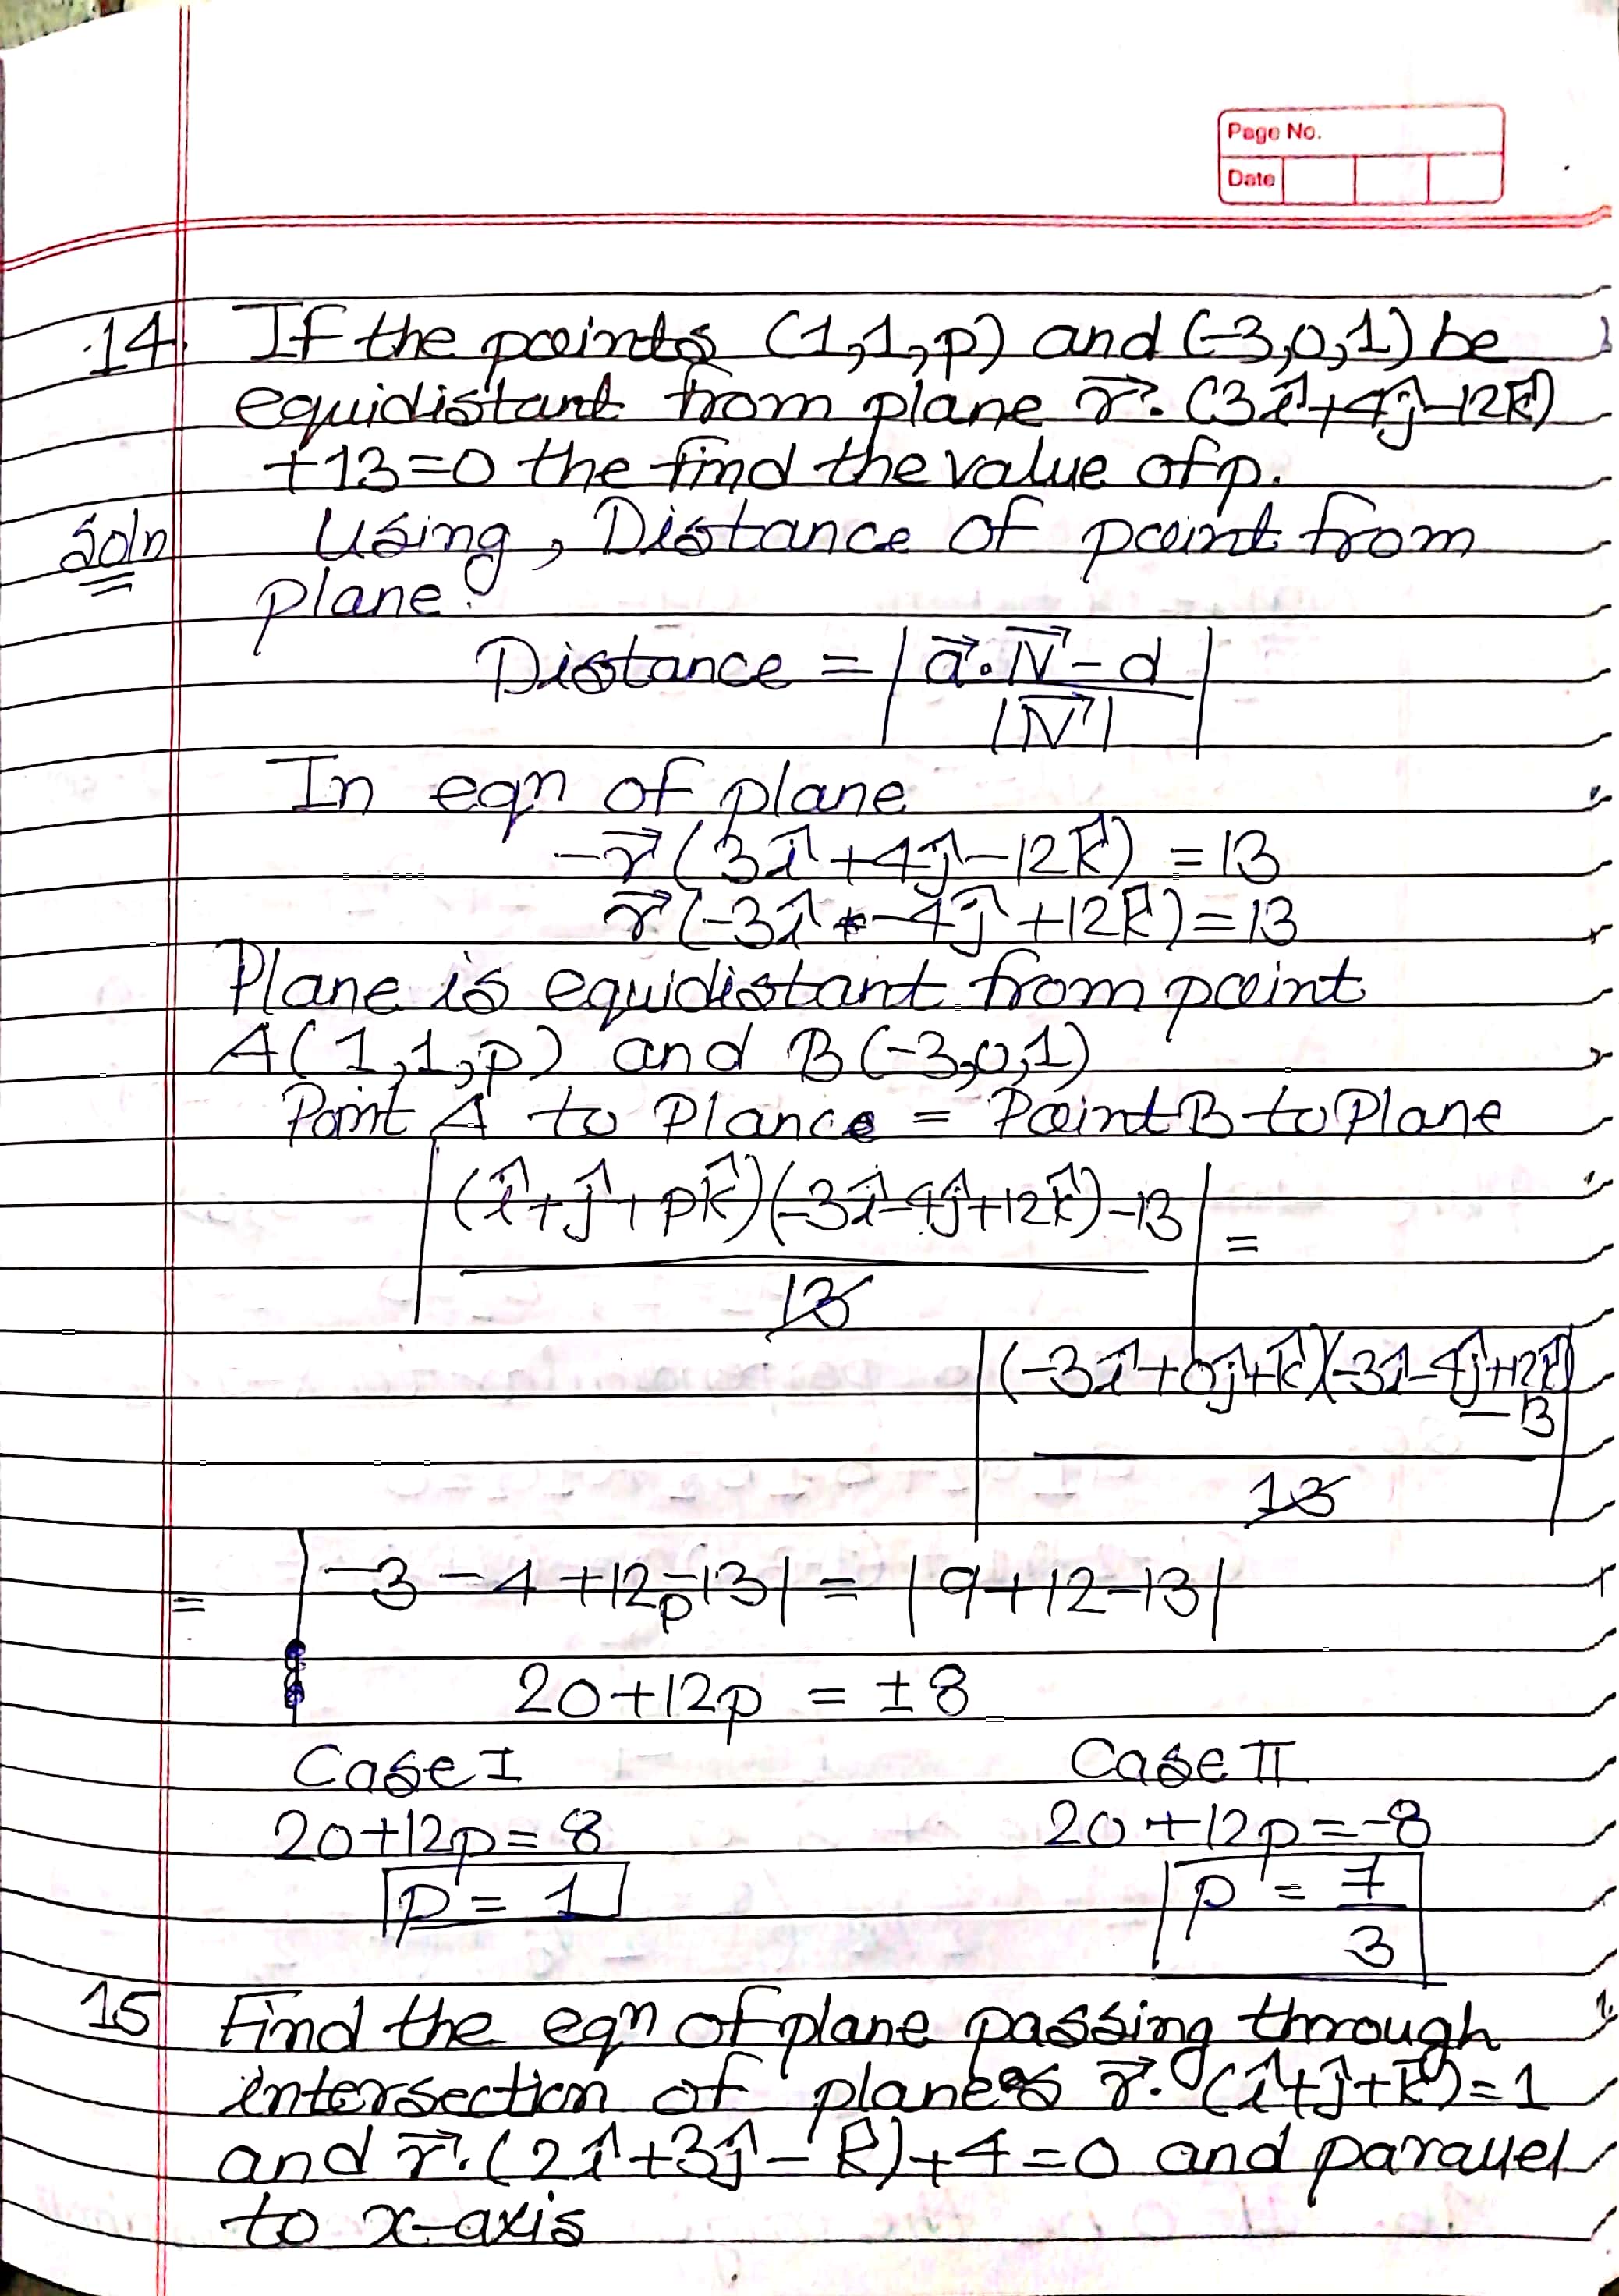 Page No.
Date
14. If the points (1,1,p) and (-3,0,1) be
equidistant from plane r⃗. (3î+4ĵ-12k̂)
+13=0 the find the value of p.
Soln Using, Distance of point from
plane.
Distance = | a⃗.N⃗ - d / |N⃗| |
In eqn of plane
-r⃗ (3î+4ĵ-12k̂) = 13
r⃗ (-3î + -4ĵ +12k̂) = 13
Plane is equidistant from point
A(1,1,p) and B(-3,0,1)
Point A to Plance = Point B to Plane
| (î+ĵ+pk̂)(-3î-4ĵ+12k̂)-13 / 13 | =
| (-3î+0ĵ+k̂)(-3î-4ĵ+12k̂) -13 / 13 |
= |-3-4+12p-13| = |9+12-13|
20+12p = ±8
Case I Case II
20+12p=8 20+12p=-8
p = 1 p = 7/3
15 Find the eqn of plane passing through
intersection of planes r⃗. (î+ĵ+k̂)=1
and r⃗. (2î+3ĵ-k̂)+4=0 and parallel
to x-axis